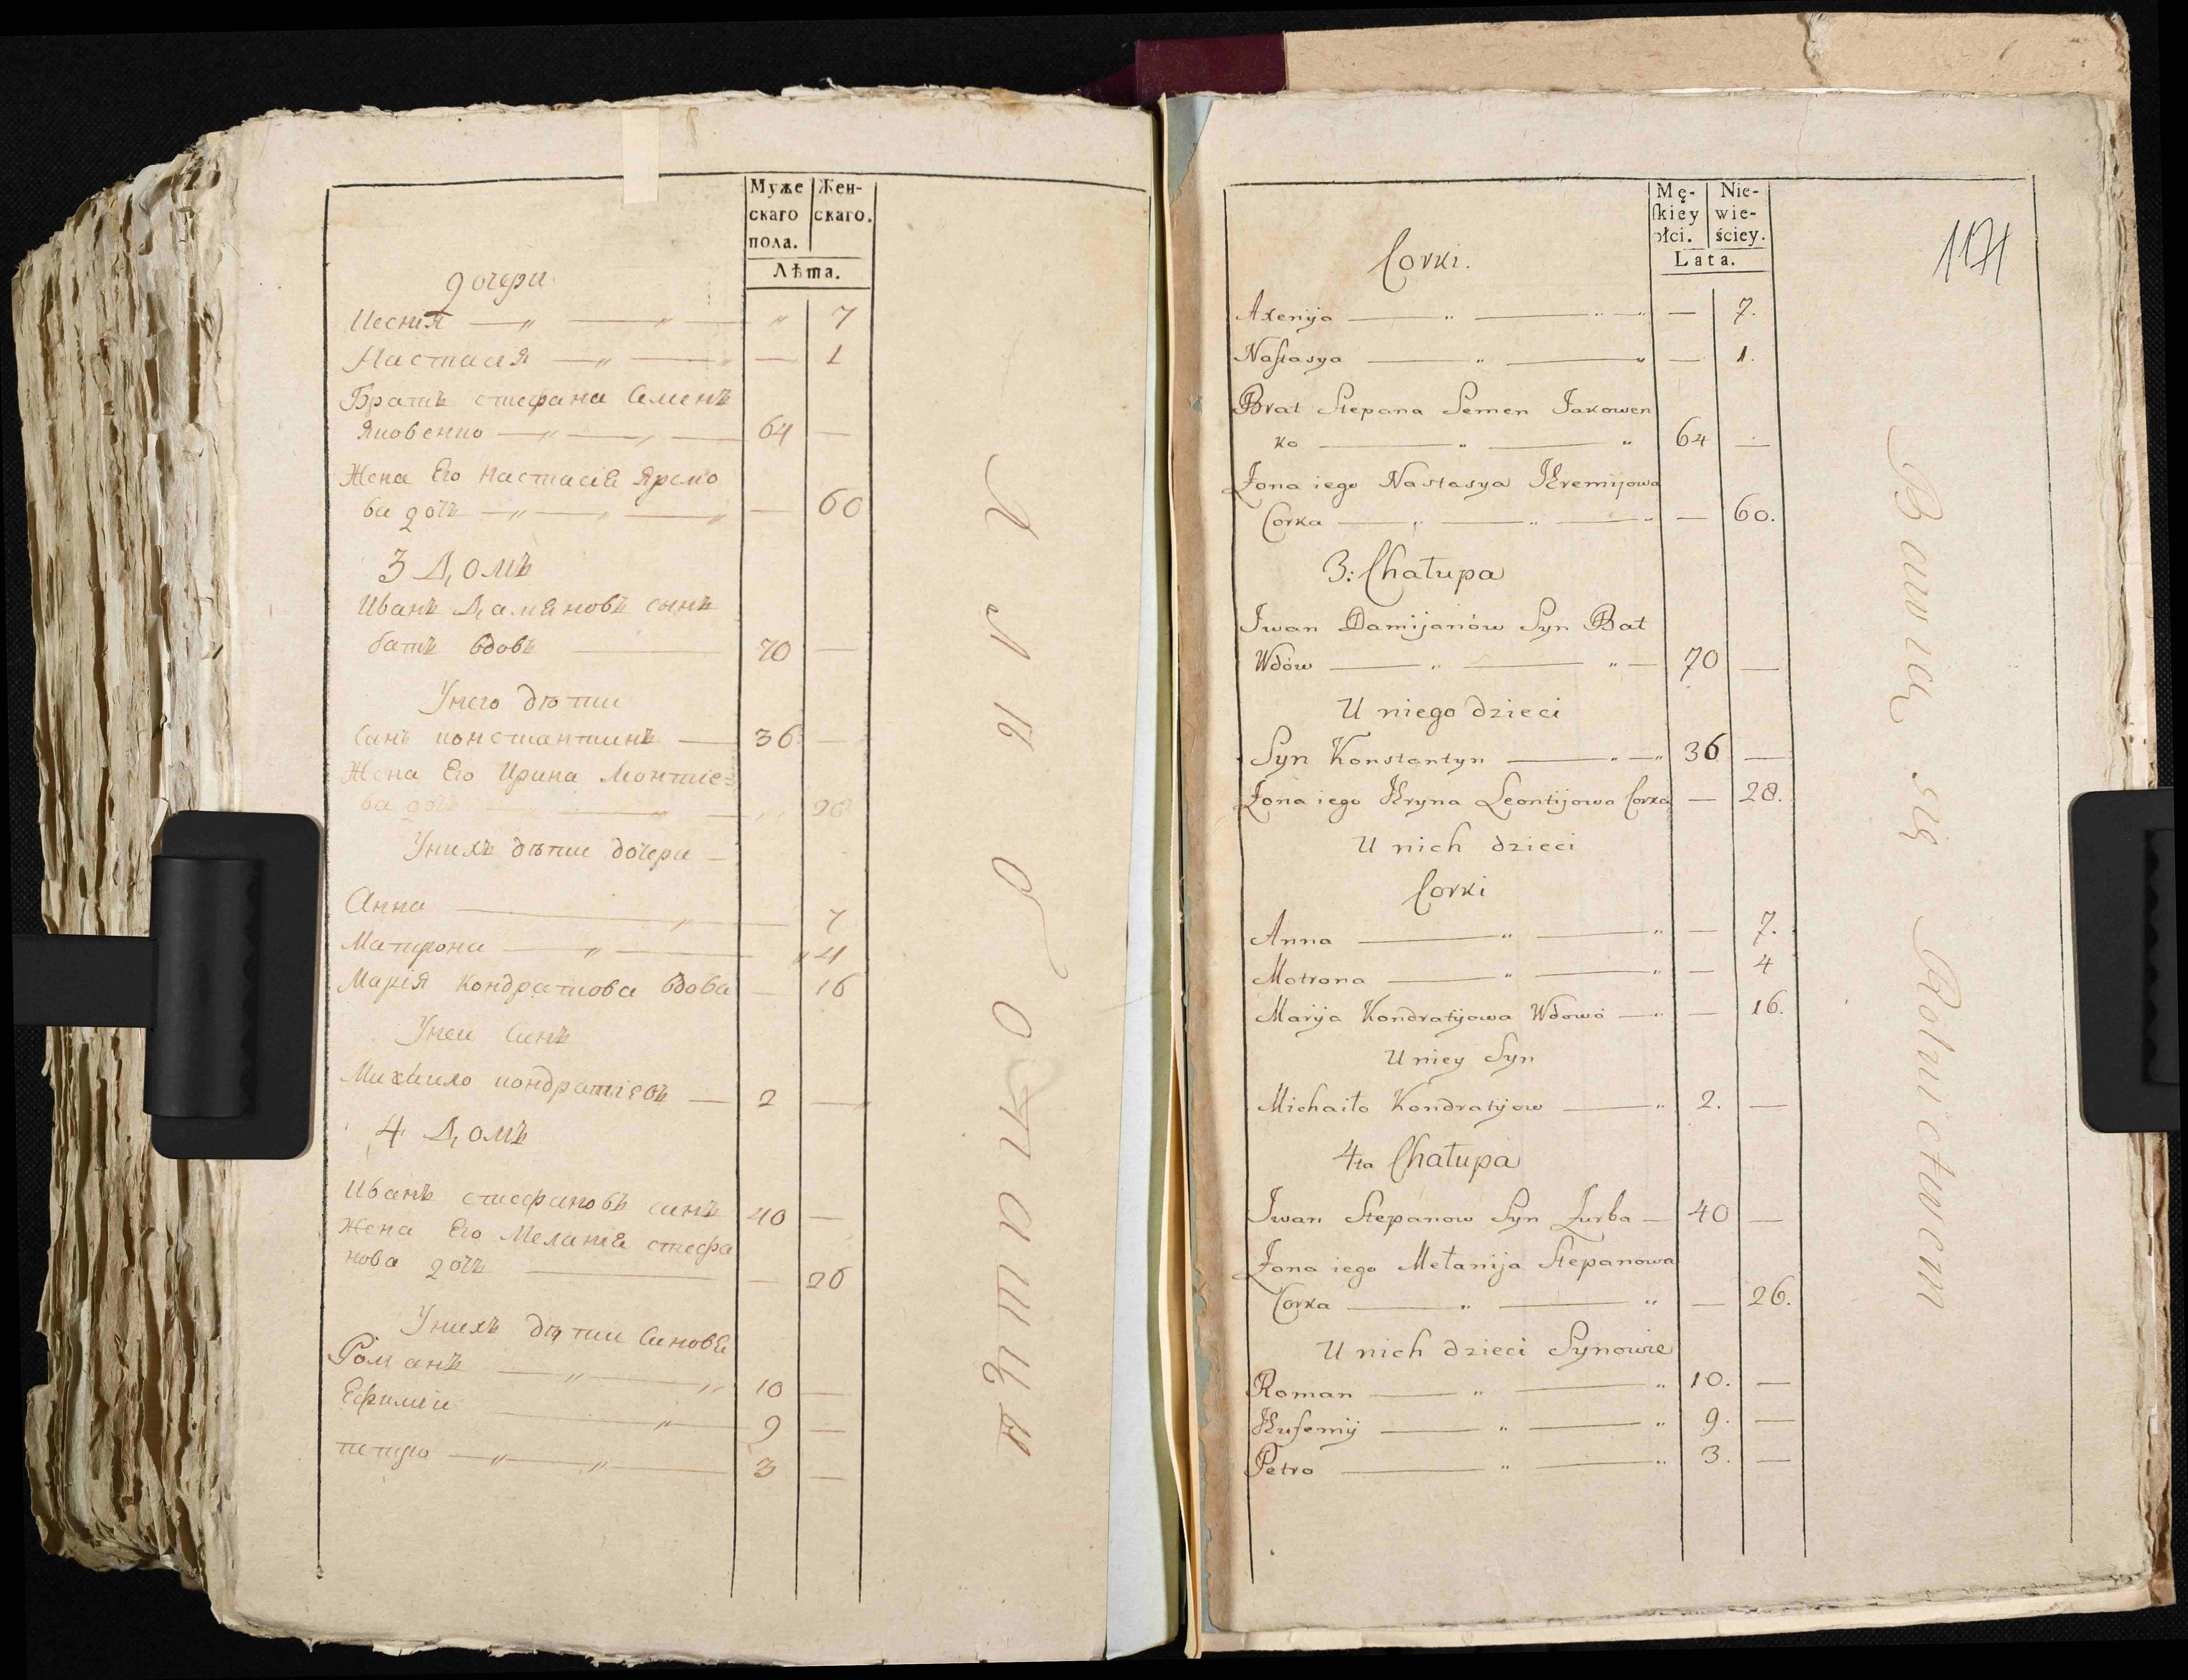 Муже Жен-
скаго скаго.
пола.
Лѣта.
дочери
Ксения 7
Настасия — 1
Братъ стефана Семенъ
Яковенко 64 —
Жена Его Настасія Яремо
ва дочь — 60
3 Домъ
Иванъ Дамяновъ сынъ
батъ вдовъ 70 —
Унего дѣти
Синъ константинъ — 36 —
Жена Его Ирина Леонтие=
ва дочь 28
Унихъ дѣти дочери —
Анна 7
Матрона 4
Марія Кондратова вдова — 16
Унеи Синъ
Михаило кондратіевъ — 2 —
4 Домъ
Иванъ стефановъ синъ 40 —
Жена Его Меланія стефа
нова дочь — 26
Унихъ дѣти Синовя
Романъ 10 —
Ефимій 9 —
петро 3 —
Mę- Nie-
ſkiey wie-
płci. ściey.
Lata.
1171
Corki.
Axenija — 7.
Naſtasya — 1.
Brat Stepana Semen Jakowen
ko 64 —
Żona iego Nastasya Jeremijowa
Corka — 60.
3: Chałupa
Iwan Damijanów Syn Bat
Wdów 70 —
U niego dzieci
Syn Konstantyn 36 —
Żona iego Jryna Leontijowa Corka — 28.
U nich dzieci
Corki
Anna — 7.
Motrona — 4
Marija Kondratijowa Wdowa — 16.
U niey Syn
Michaiło Kondratijow 2. —
4ta Chałupa
Iwan Stepanow Syn Żurba — 40 —
Żona iego Mełanija Stepanowa
Corka — 26.
U nich dzieci Synowie
Roman 10. —
Jeufemij 9. —
Petro 3. —
Bawią się Rolnictwem